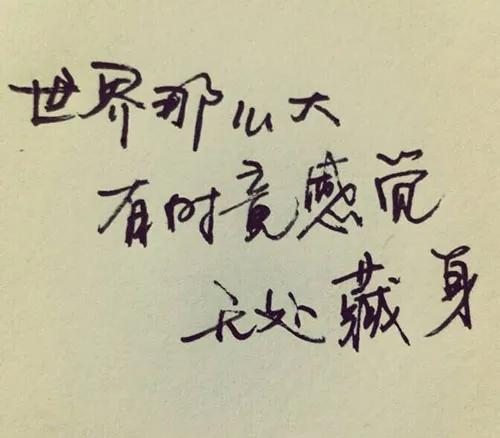 世界那么大
有时竟感觉
无处藏身